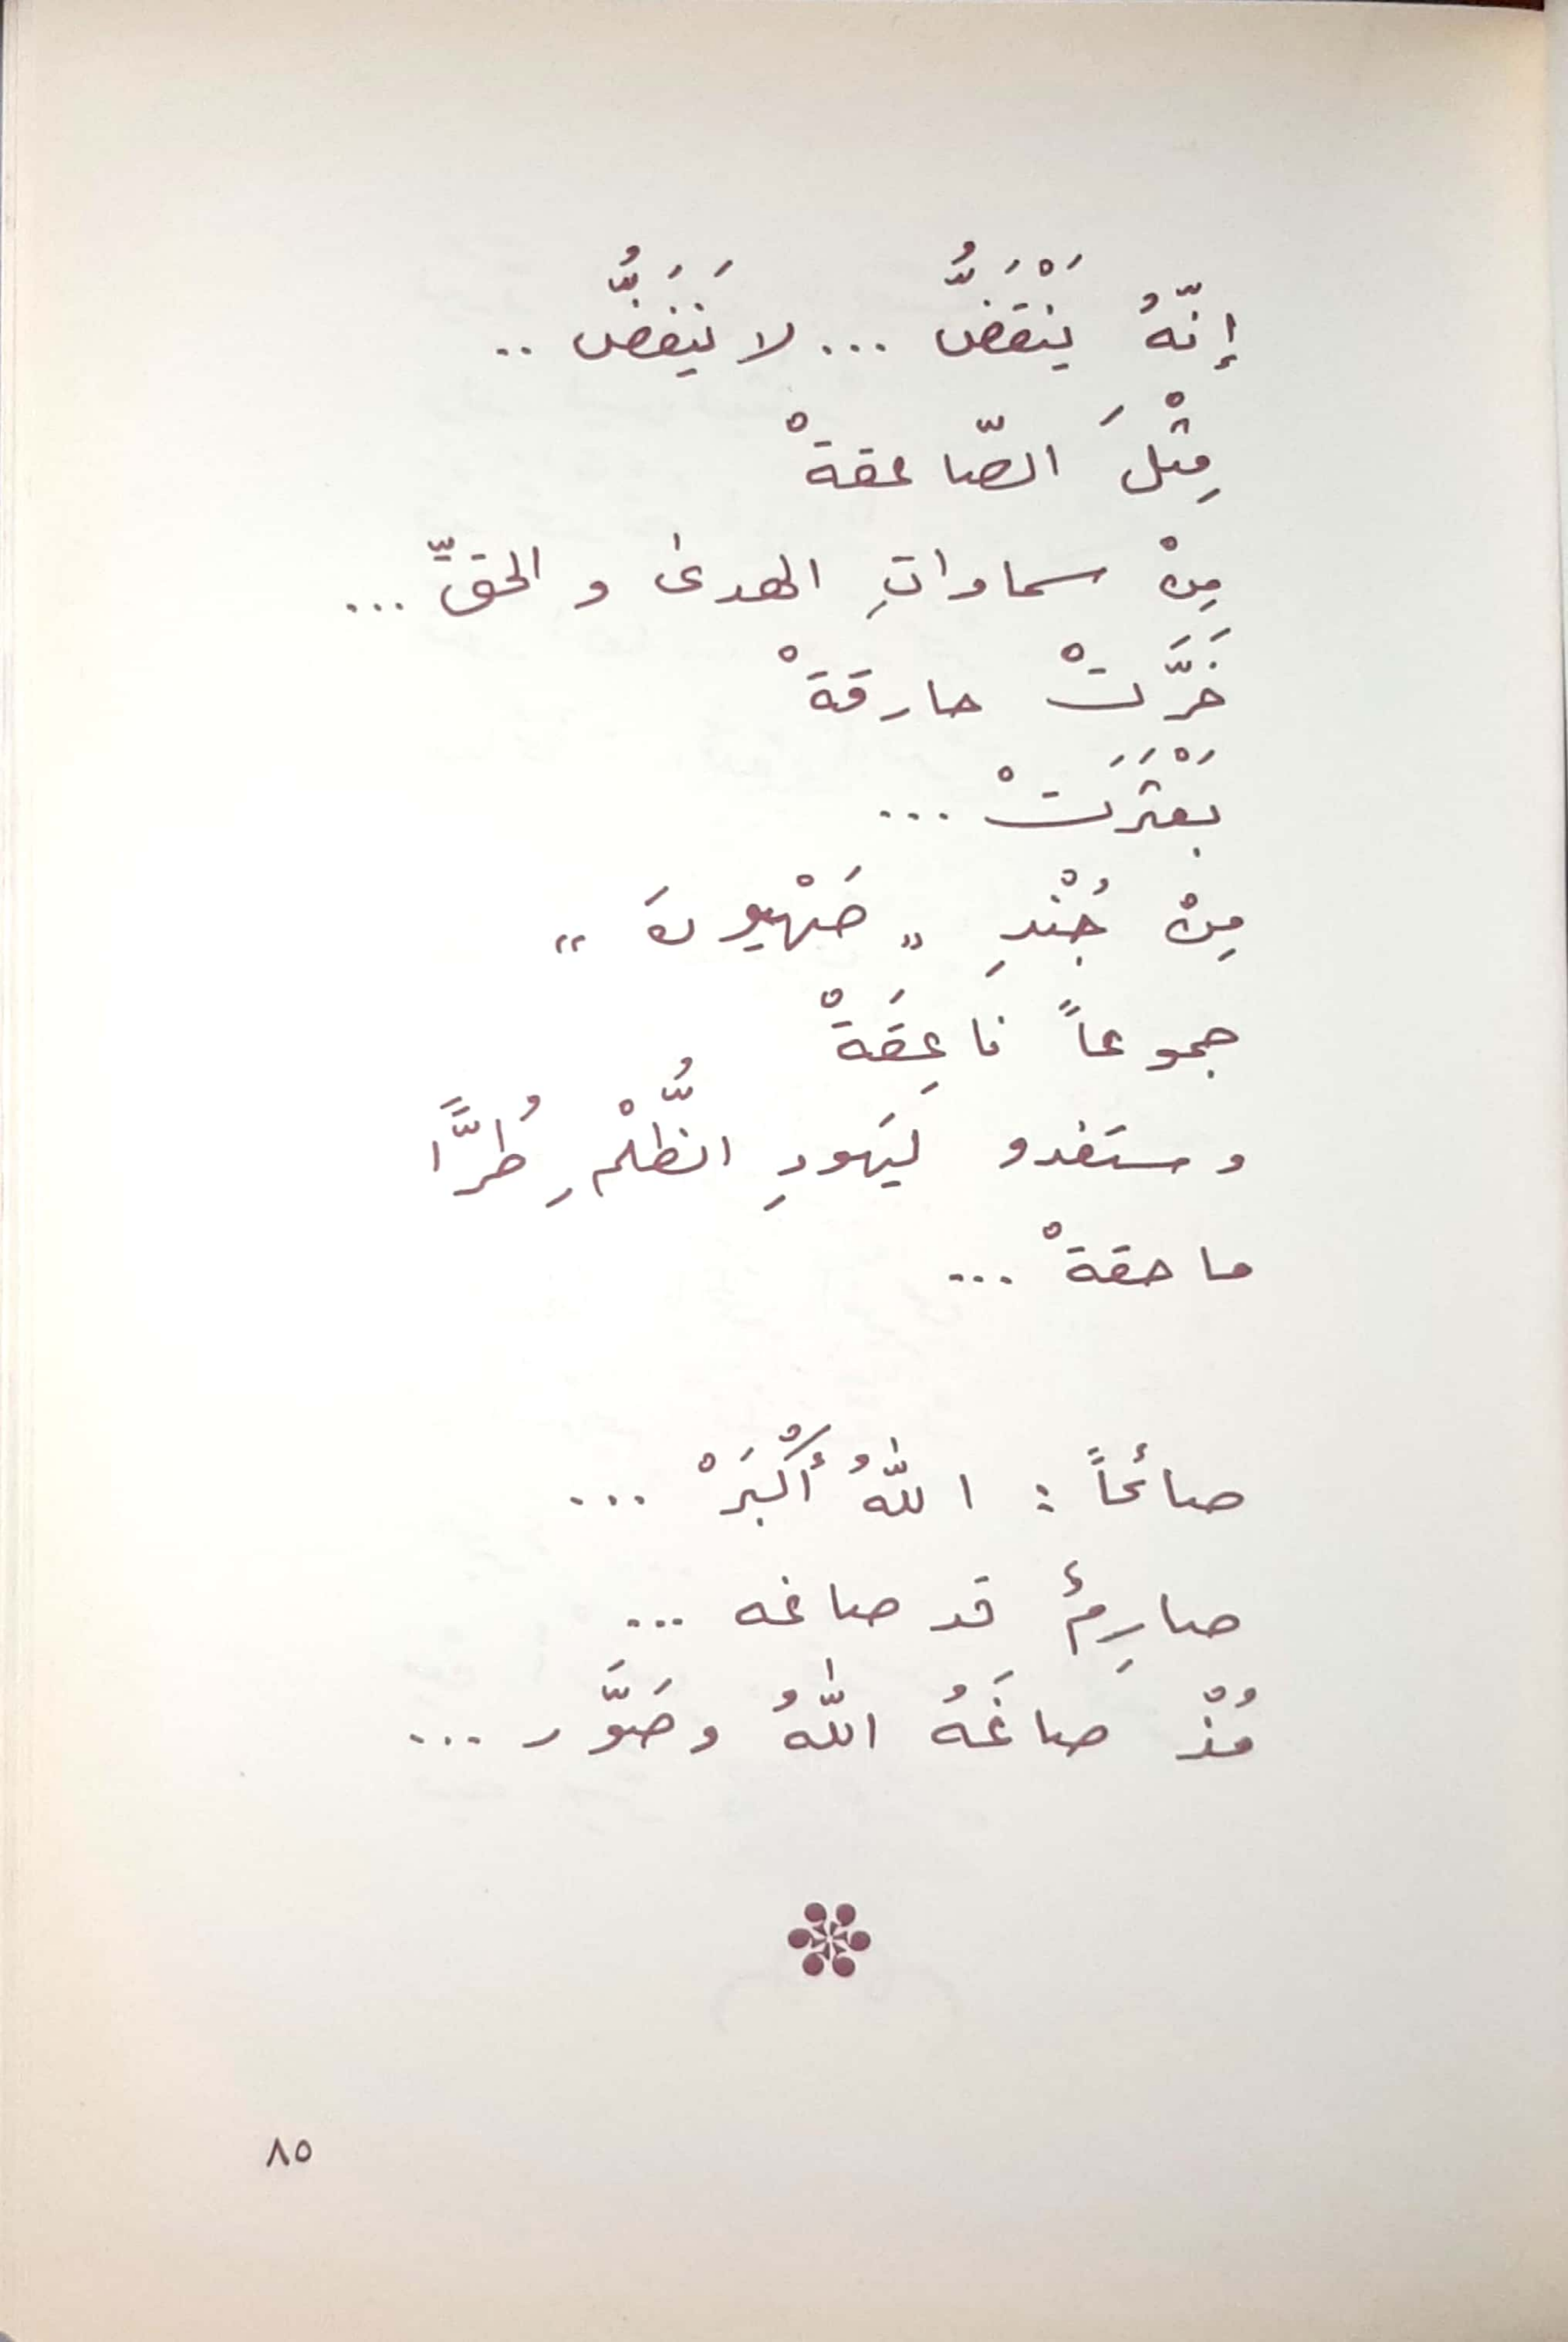 إنّهُ يَنْقَضُّ ... لا يَنفَضُّ ..
مِثْلَ الصّاعقةْ
مِنْ سماواتِ الهدىٰ و الحقِّ ...
خَرَّتْ حارقةْ
بَعْثَرَتْ ...
مِنْ جُنْدِ " صَهْيونَ "
جموعاً ناعِقَةْ
وستغدو ليَهودِ الظُّلْمِ طُرَّاً
ماحقةْ ...
صائحاً : اللّٰهُ أكْبَرْ ...
صارِمٌ قد صاغه ...
مُذْ صاغَهُ اللّٰهُ وصَوَّر ...
٨٥